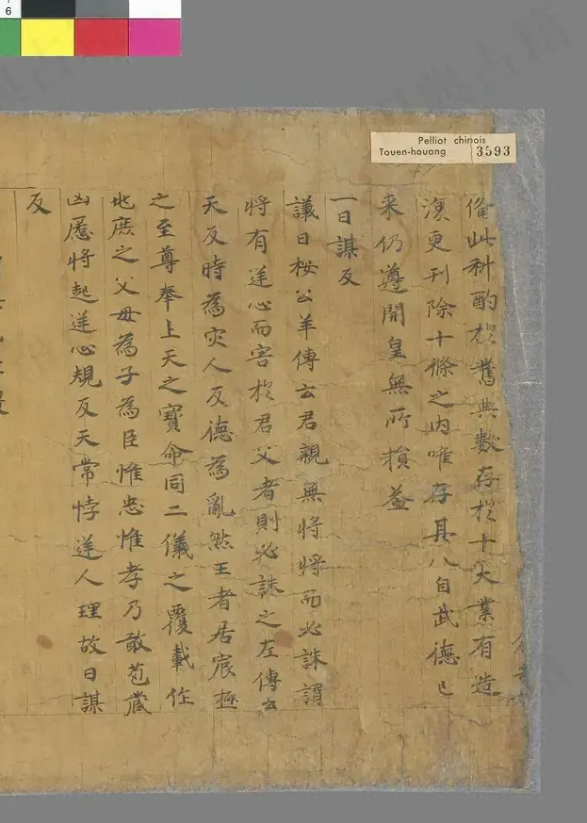 6
Pelliot chinois
Touen-houang 3593
備此科酌於舊典數存於十大業有造
復更刊除十條之内唯存其八自武德已
来仍遵開皇無所損益
一曰謀反
議曰桉公羊傳云君親無將將而必誅謂
將有逆心而害於君父者則必誅之左傳云
天反時為灾人反德為亂然王者居宸極
之至尊奉上天之寶命同二儀之覆載作
兆庶之父母為子為臣惟忠惟孝乃敢苞藏
凶慝將起逆心規反天常悖逆人理故曰謀
反